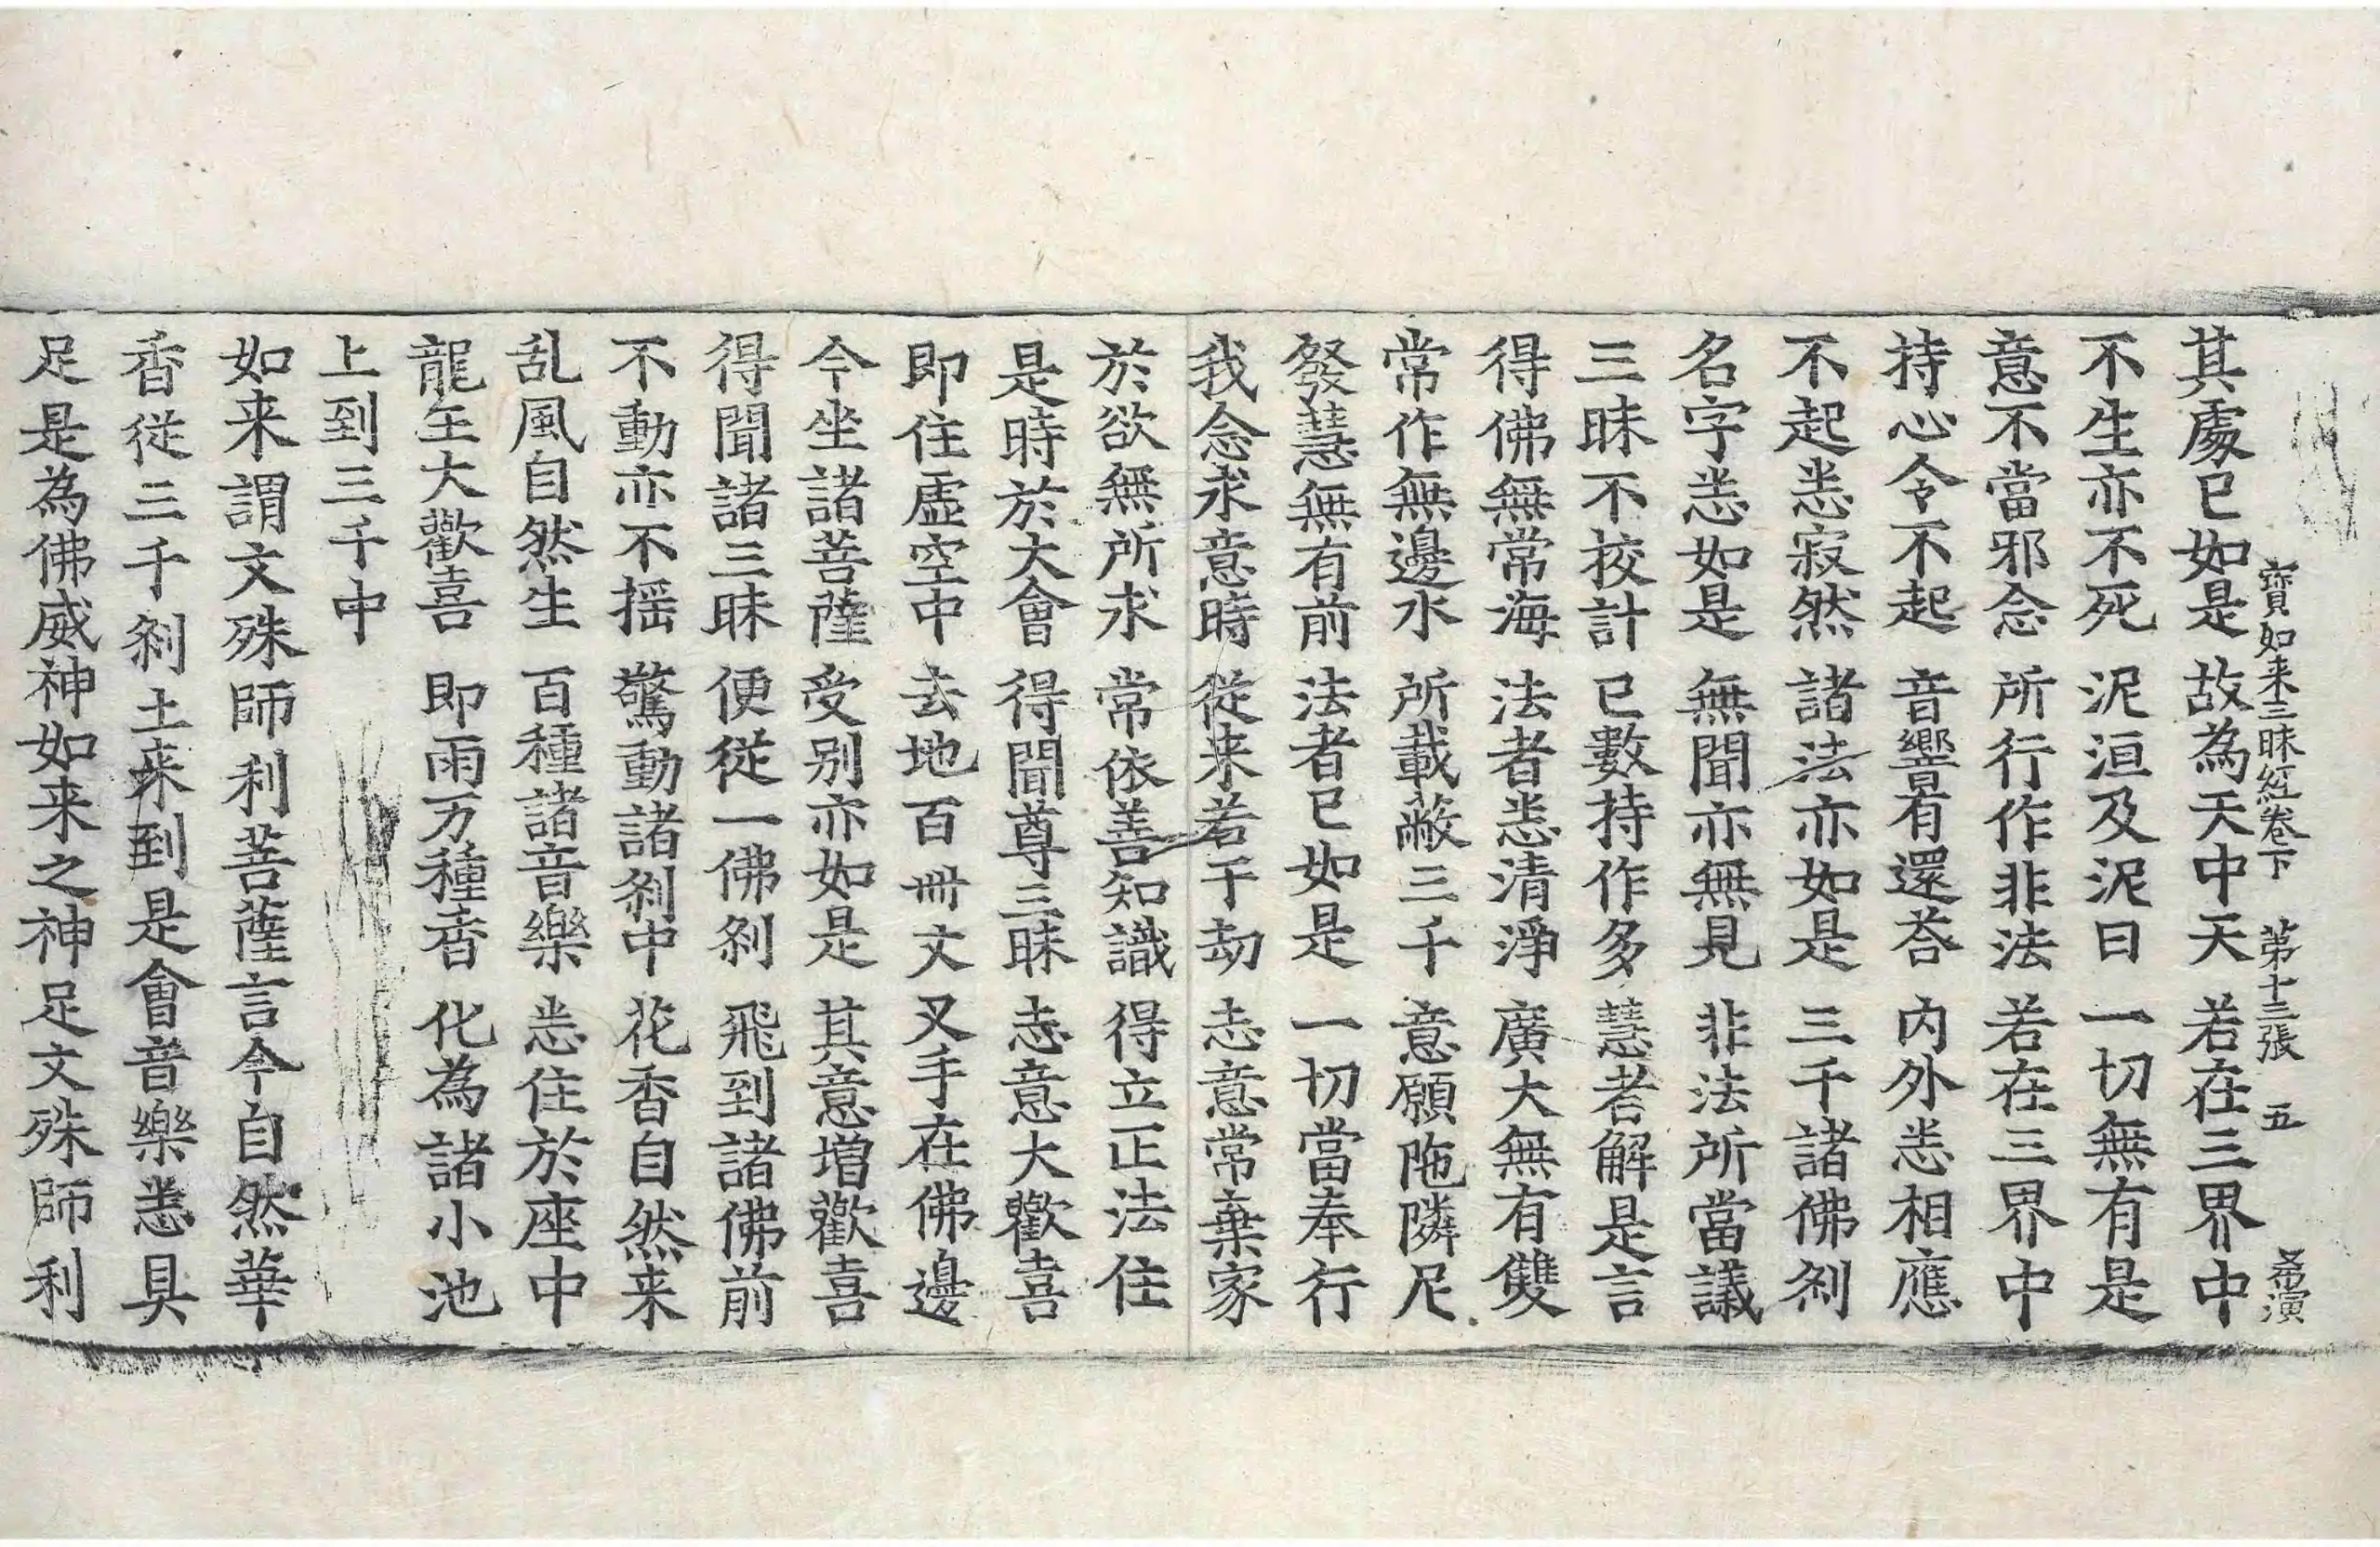 寶如来三昧経卷下 第十三張 五 希演
其處已如是 故為天中天 若在三界中
不生亦不死 泥洹及泥曰 一切無有是
意不當邪念 所行作非法 若在三界中
持心令不起 音響有還荅 内外悉相應
不起悉寂然 諸法亦如是 三千諸佛刹
名字悉如是 無聞亦無見 非法所當議
三昧不挍計 已數持作多 慧者解是言
得佛無常海 法者悉清淨 廣大無有雙
常作無邊水 所載蔽三千 意願陁隣尼
發慧無有前 法者已如是 一切當奉行
我念求意時 從来若干劫 志意常棄家
於欲無所求 常依善知識 得立正法住
是時於大會 得聞尊三昧 志意大歡喜
即住虛空中 去地百卌丈 叉手在佛邊
今坐諸菩薩 受別亦如是 其意增歡喜
得聞諸三昧 便從一佛刹 飛到諸佛前
不動亦不揺 驚動諸刹中 花香自然来
乱風自然生 百種諸音樂 悉住於座中
龍王大歡喜 即雨万種香 化為諸小池
上到三千中
如来謂文殊師利菩薩言今自然華
香從三千刹土来到是會音樂悉具
足是為佛威神如来之神足文殊師利